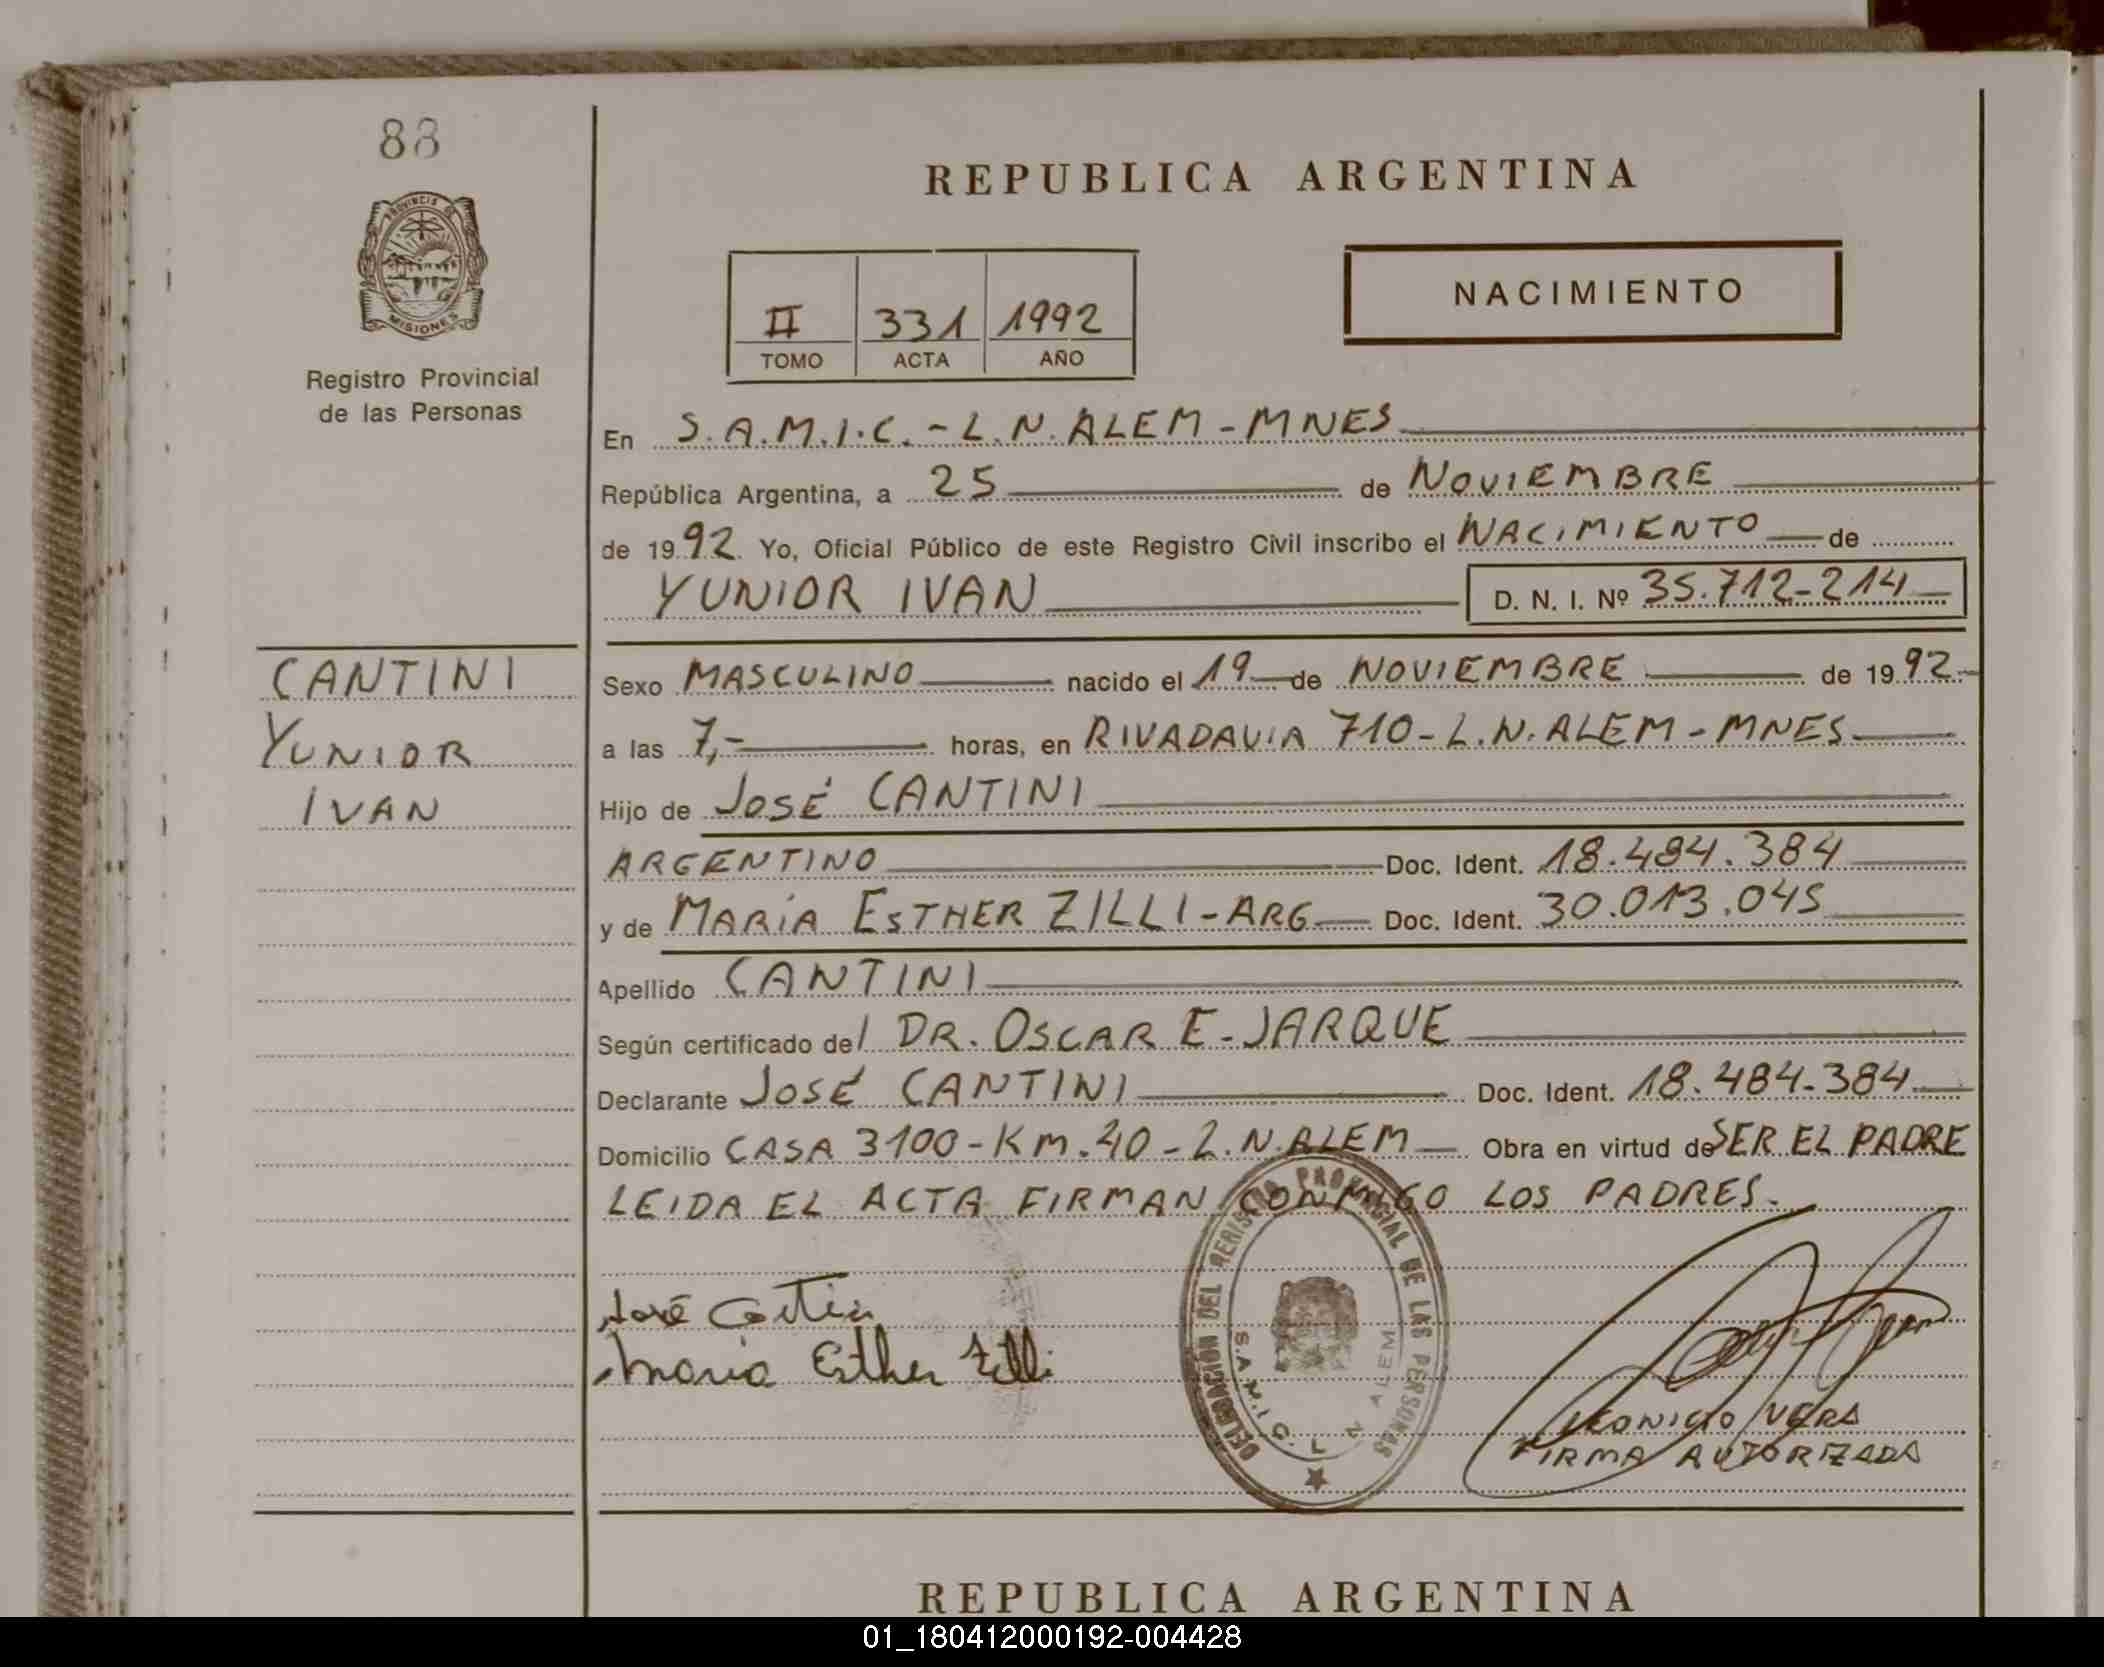 88
PROVINCIA DE
MISIONES
Registro Provincial
de las Personas
REPUBLICA ARGENTINA
II 331 1992
TOMO ACTA AÑO
NACIMIENTO
En S.A.M.I.C. - L.N. ALEM - MNES
República Argentina, a 25 de NOVIEMBRE
de 1992 Yo, Oficial Público de este Registro Civil inscribo el NACIMIENTO de
YUNIOR IVAN D. N. I. Nº 35.712-214
CANTINI
YUNIOR
IVAN
Sexo MASCULINO nacido el 19 de NOVIEMBRE de 1992-
a las 7,- horas, en RIVADAVIA 710 - L.N. ALEM - MNES
Hijo de JOSÉ CANTINI
ARGENTINO Doc. Ident. 18.484.384
y de MARÍA ESTHER ZILLI - ARG Doc. Ident. 30.013.045
Apellido CANTINI
Según certificado del DR. OSCAR E. JARQUE
Declarante JOSÉ CANTINI Doc. Ident. 18.484.384
Domicilio CASA 3100 - KM. 40 - L.N. ALEM Obra en virtud de SER EL PADRE
LEIDA EL ACTA FIRMAN CONMIGO LOS PADRES.
José Cantini
Maria Esther Zilli
DELEGACIÓN DEL REGISTRO PROVINCIAL DE LAS PERSONAS
L N ALEM
LEONICIO VERA
FIRMA AUTORIZADA
REPUBLICA ARGENTINA
01_180412000192-004428